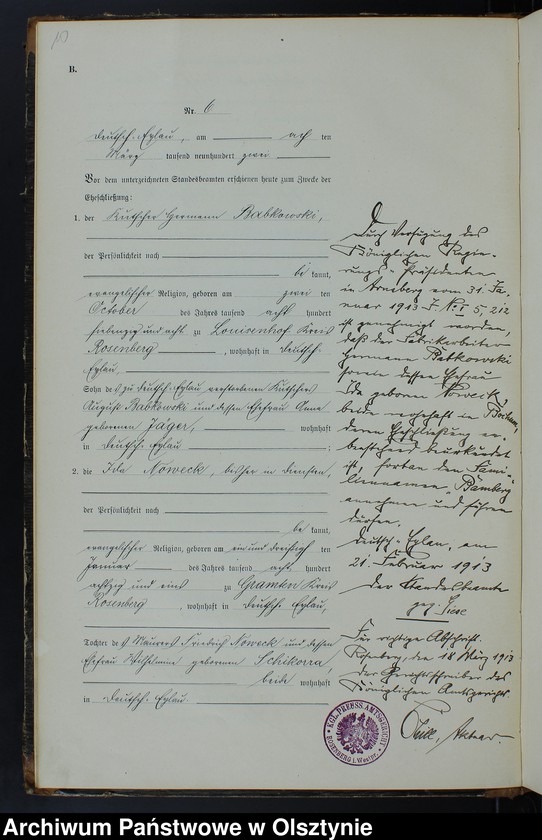 B.
Nr. 6
Deutsch-Eylau, am acht ten
März tausend neunhundert zwei
Vor dem unterzeichneten Standesbeamten erschienen heute zum Zwecke der
Eheschließung:
1. der Kutscher Hermann Babkowski,
der Persönlichkeit nach
be kannt,
evangelischer Religion, geboren am zwei ten
October des Jahres tausend acht hundert
siebenzig und acht zu Louisenhof Kreis
Rosenberg, wohnhaft in Deutsch-
Eylau,
Sohn des zu Deutsch-Eylau verstorbenen Kutschers
August Babkowski und dessen Ehefrau Anna
geborenen Jäger, wohnhaft
in Deutsch-Eylau;
2. die Ida Noweck, bisher in Diensten,
der Persönlichkeit nach
be kannt,
evangelischer Religion, geboren am ein und dreißig ten
Januar des Jahres tausend acht hundert
achtzig und eins zu Gramten Kreis
Rosenberg, wohnhaft in Deutsch-Eylau,
Tochter des Maurers Friedrich Noweck und dessen
Ehefrau Wilhelmine geborenen Schikorra,
beide wohnhaft
in Deutsch-Eylau.
Durch Verfügung des
Königlichen Regie-
rungs-Präsidenten
in Arnsberg vom 31. Ja-
nuar 1913 5,212
ist genehmigt worden,
daß der Fabrikarbeiter
Hermann Babkowski
sowie dessen Ehefrau
Ida geborene Noweck,
beide wohnhaft in Bochum,
deren Eheschließung ne-
benstehend beurkundet
ist, fortan den Fami-
liennamen Bamberg
annehmen und führen
dürfen.
Deutsch-Eylau, am
21. Februar 1913
Der Standesbeamte
gez. Liese
Für richtige Abschrift.
Rosenberg, den 18 März 1913
Der Gerichtsschreiber des
Königlichen Amtsgerichts
Aktuar.
KGL. PREUSS. AMTSGERICHT
ROSENBERG i. Westpr.
Archiwum Państwowe w Olsztynie